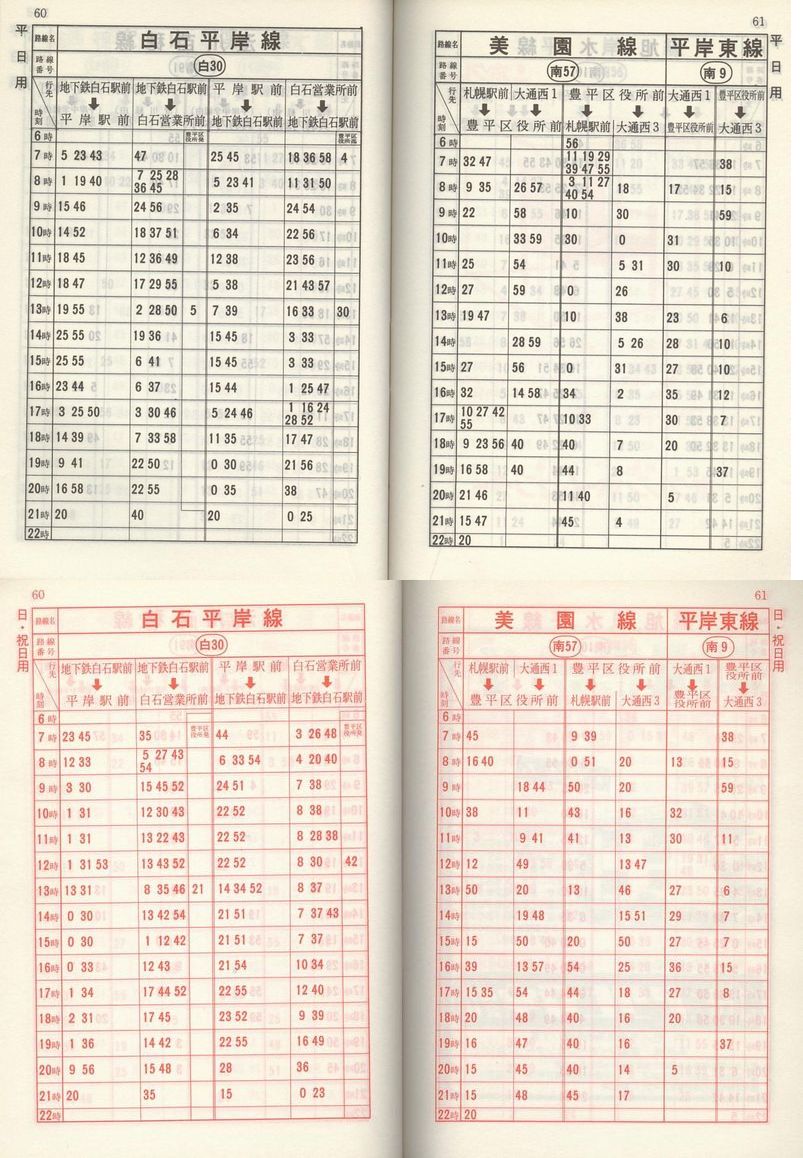 60
平日用
路線名 白石平岸線
路線番号 白30
行先 時刻 地下鉄白石駅前 ↓ 平岸駅前 地下鉄白石駅前 ↓ 白石営業所前 平岸駅前 ↓ 地下鉄白石駅前 白石営業所前 ↓ 地下鉄白石駅前
6時 豊平区役所発
7時 5 23 43 47 25 45 18 36 58 4
8時 1 19 40 7 25 28 36 45 5 23 41 11 31 50
9時 15 46 24 56 2 35 24 54
10時 14 52 18 37 51 6 34 22 56
11時 18 45 12 36 49 12 38 23 56
12時 18 47 17 29 55 5 38 21 43 57
13時 19 55 2 28 50 5 7 39 16 33 30
14時 25 55 19 36 15 45 3 33
15時 25 55 6 41 15 45 3 33
16時 23 44 6 37 15 44 1 25 47
17時 3 25 50 3 30 46 5 24 46 1 16 24 28 52
18時 14 39 7 33 58 11 35 17 47
19時 9 41 22 50 0 30 21 56
20時 16 58 22 55 0 35 38
21時 20 40 20 0 25
22時
61
平日用
路線名 美園線 平岸東線
路線番号 南57 南9
行先 時刻 札幌駅前 大通西1 ↓ 豊平区役所前 豊平区役所前 ↓ 札幌駅前 大通西3 大通西1 ↓ 豊平区役所前 豊平区役所前 ↓ 大通西3
6時 56
7時 32 47 11 19 29 39 47 55 38
8時 9 35 26 57 3 11 27 40 54 18 17 15
9時 22 58 10 30 59
10時 33 59 30 0 31
11時 25 54 5 31 30 10
12時 27 59 0 26
13時 19 47 10 38 23 6
14時 28 59 5 26 28 10
15時 27 56 0 31 27 10
16時 32 14 58 34 2 35 12
17時 10 27 42 55 10 33 30 7
18時 9 23 56 40 40 7 20
19時 16 58 40 44 8 37
20時 21 46 11 40 5
21時 15 47 45 4
22時 20
60
日・祝日用
路線名 白石平岸線
路線番号 白30
行先 時刻 地下鉄白石駅前 ↓ 平岸駅前 地下鉄白石駅前 ↓ 白石営業所前 平岸駅前 ↓ 地下鉄白石駅前 白石営業所前 ↓ 地下鉄白石駅前
6時
7時 23 45 35 豊平区役所発 44 3 26 48 豊平区役所発
8時 12 33 5 27 43 54 6 33 54 4 20 40
9時 3 30 15 45 52 24 51 7 38
10時 1 31 12 30 43 22 52 8 38
11時 1 31 13 22 43 22 52 8 28 38
12時 1 31 53 13 43 52 22 52 8 30 42
13時 13 31 8 35 46 21 14 34 52 8 37
14時 0 30 13 42 54 21 51 7 37 43
15時 0 30 1 12 42 21 51 7 37
16時 0 33 12 43 21 54 10 34
17時 1 34 17 44 52 22 55 12 40
18時 2 31 17 45 23 52 9 39
19時 1 36 14 42 22 55 16 49
20時 9 56 15 48 28 36
21時 20 35 15 0 23
22時
61
日・祝日用
路線名 美園線 平岸東線
路線番号 南57 南9
行先 時刻 札幌駅前 大通西1 ↓ 豊平区役所前 豊平区役所前 ↓ 札幌駅前 大通西3 大通西1 ↓ 豊平区役所前 豊平区役所前 ↓ 大通西3
6時
7時 45 9 39 38
8時 16 40 0 51 20 13 15
9時 18 44 50 20 59
10時 38 11 43 16 32
11時 9 41 41 13 30 11
12時 12 49 13 47
13時 50 20 13 46 27 6
14時 19 48 15 51 29 7
15時 15 50 20 50 27 7
16時 39 13 57 54 25 36 15
17時 15 35 54 44 18 27 8
18時 20 48 40 16 20
19時 16 47 40 16 37
20時 15 45 40 14 5
21時 15 48 45 17
22時 20